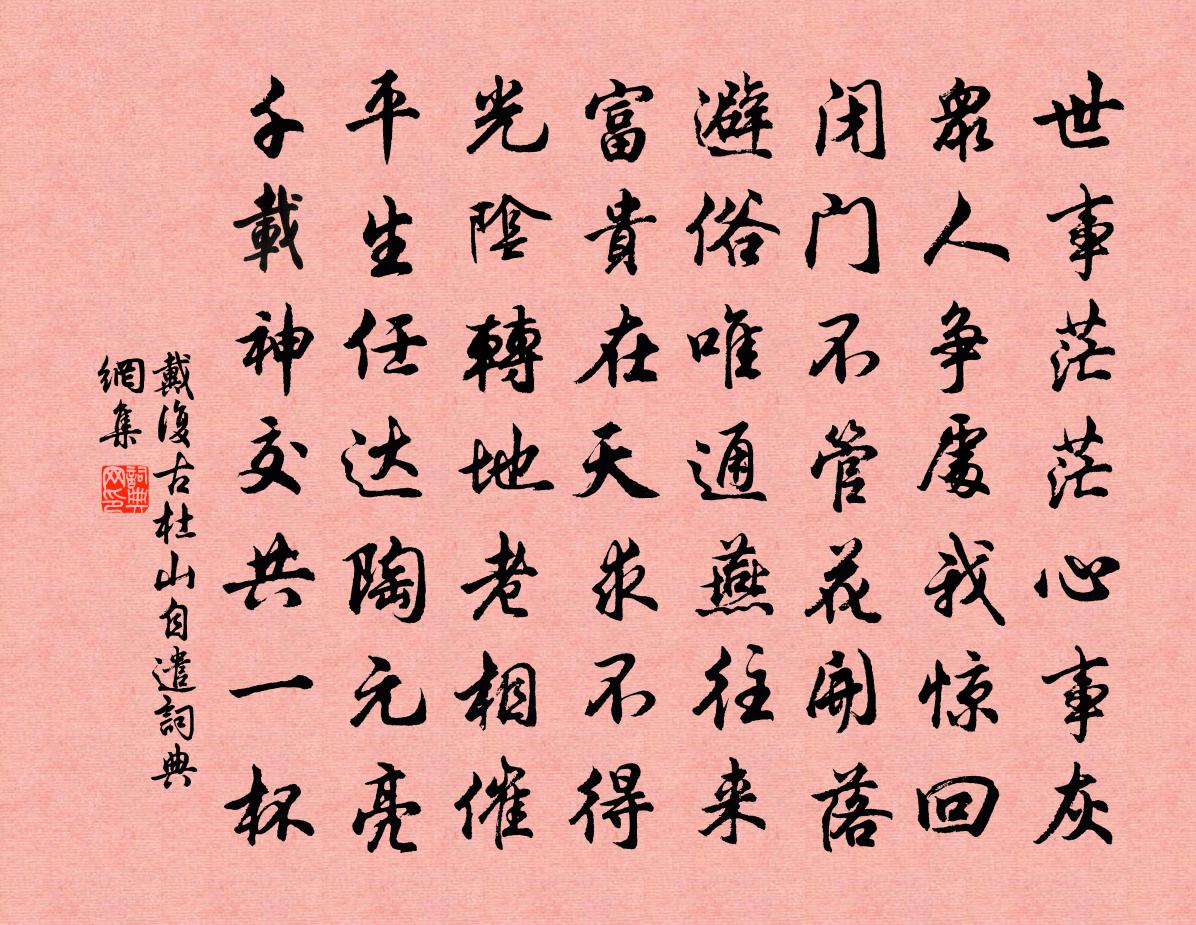 世事茫茫心事灰
眾人爭處我惊回
闭门不管花開落
避俗唯通燕往来
富貴在天求不得
光陰轉地老相催
平生任达陶元亮
千載神交共一杯
戴復古杜山自遣詞典
網集
詞典
网印